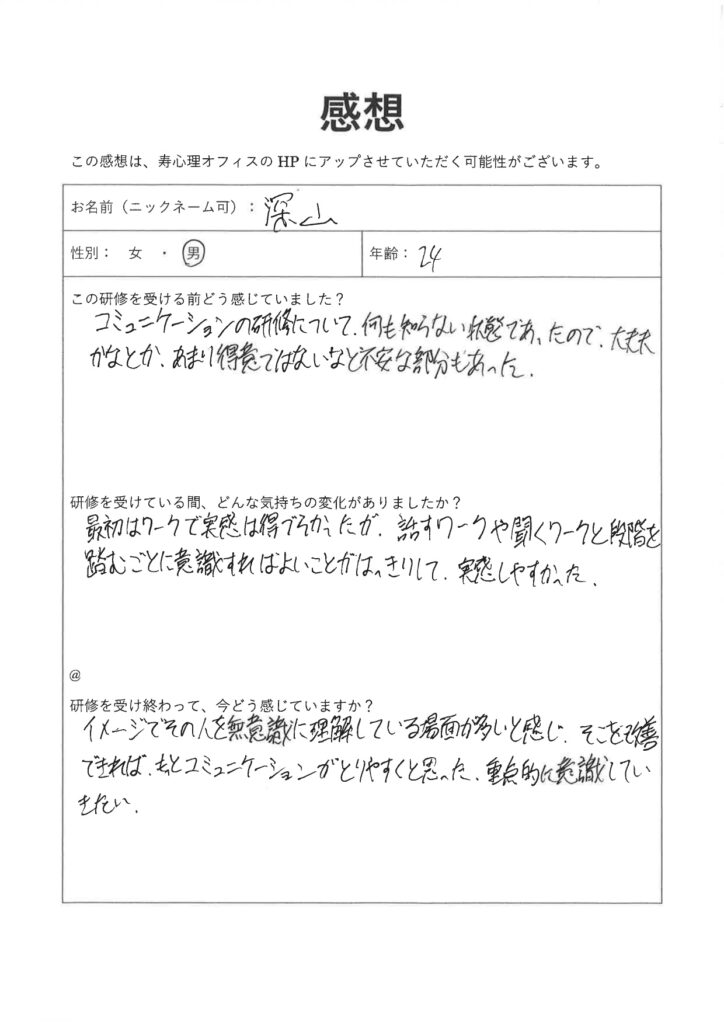 感想
この感想は、寿心理オフィスの HP にアップさせていただく可能性がございます。
お名前（ニックネーム可）： 深山
性別： 女 ・ 男
年齢： 24
この研修を受ける前どう感じていました？
コミュニケーションの研修について、何も知らない状態であったので、大丈夫
かなとか、あまり得意ではないなと不安な部分もあった。
研修を受けている間、どんな気持ちの変化がありましたか？
最初はワークで実感は得づらかったが、話すワークや聞くワークと段階を
踏むごとに意識すればよいことがはっきりして、実感しやすかった。
@
研修を受け終わって、今どう感じていますか？
イメージでその人を無意識に理解している場面が多いと感じ、そこを改善
できれば、もっとコミュニケーションがとりやすくと思った。重点的に意識してい
きたい。